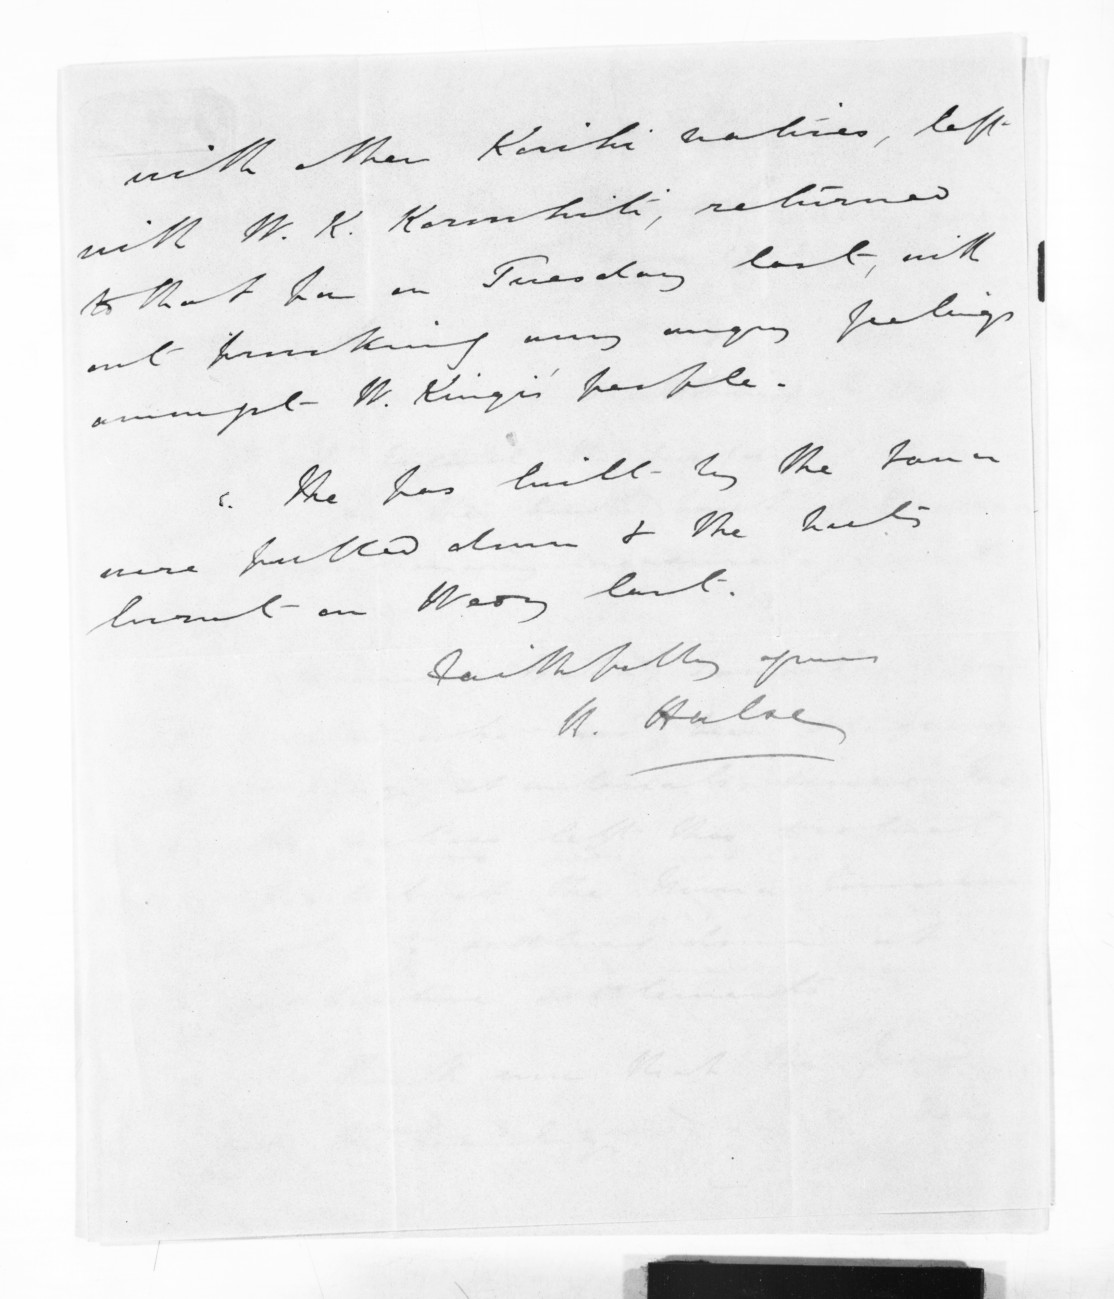 with other Karihi natives, left
with W. K. Korowhiti, returned
to that pa on Tuesday last, with
out provoking any angry feelings
amongst W. Kingi's people.
5. The pas built by the Town
were pulled down & the huts
burnt on Wedy last.
Faithfully yours
H. Halse